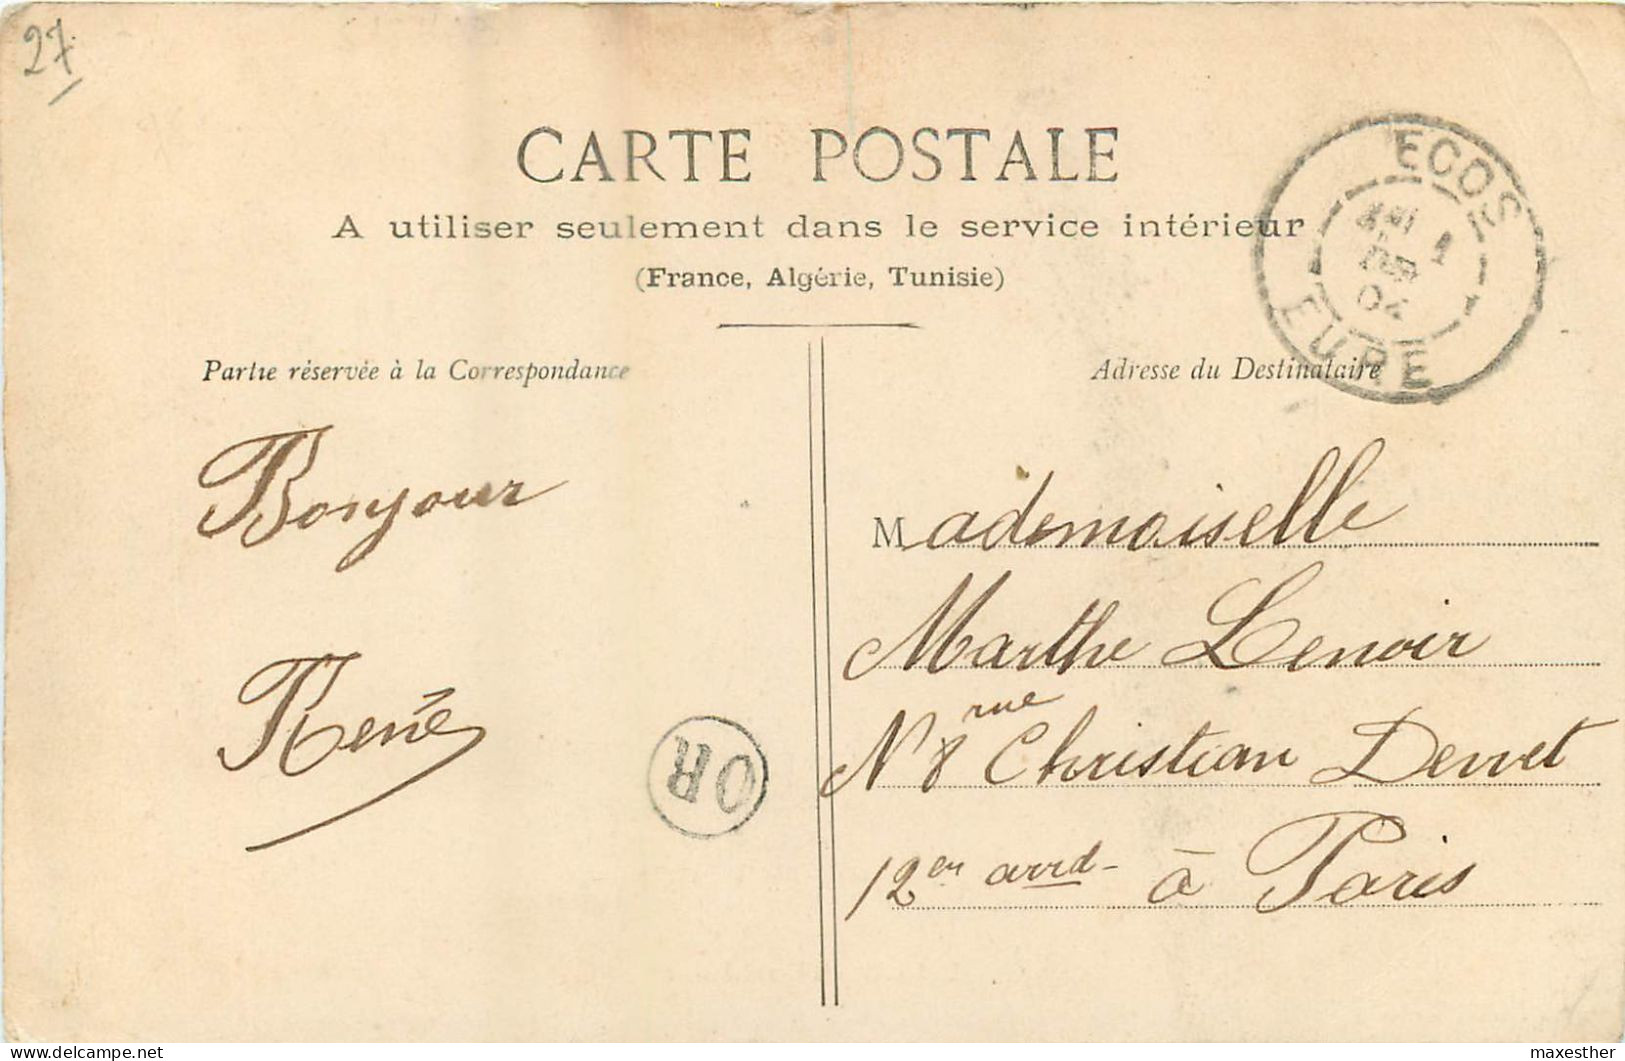 27
CARTE POSTALE
A utiliser seulement dans le service intérieur
(France, Algérie, Tunisie)
ECOS
1
04
EURE
Partie réservée à la Correspondance
Adresse du Destinataire
Bonjour
René
OR
Mademoiselle
Marthe Lenoir
N 8 rue Christian Dewet
12em arrd - à Paris
delcampe.net
maxesther